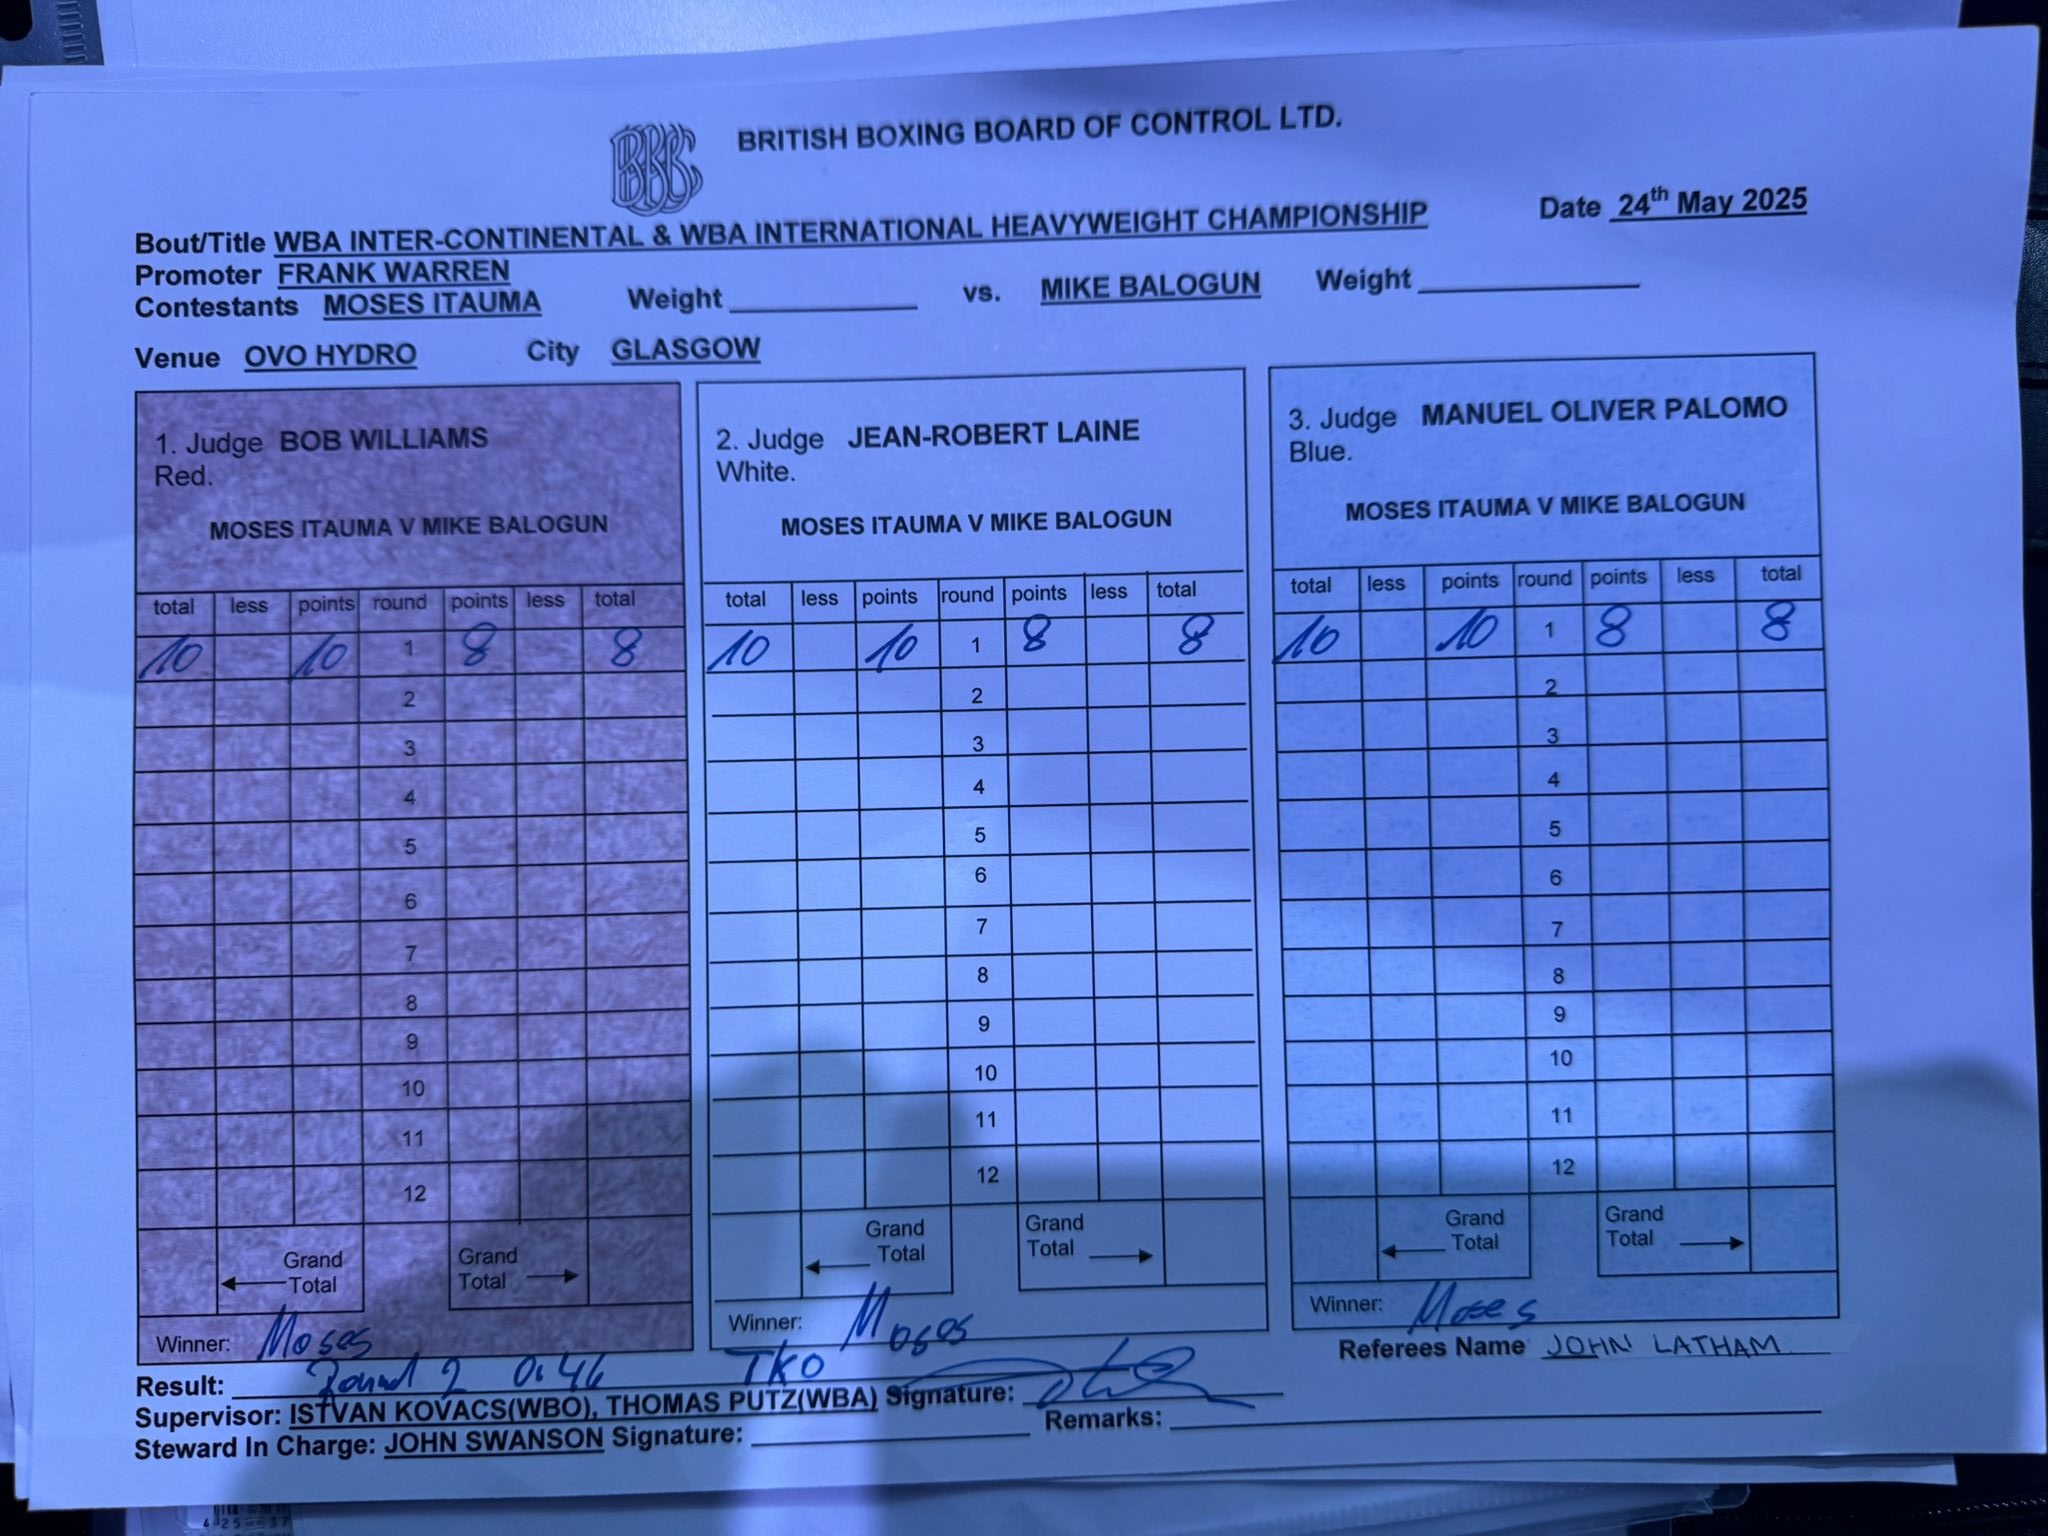 BBBC
BRITISH BOXING BOARD OF CONTROL LTD.
Bout/Title WBA INTER-CONTINENTAL & WBA INTERNATIONAL HEAVYWEIGHT CHAMPIONSHIP Date 24th May 2025
Promoter FRANK WARREN
Contestants MOSES ITAUMA Weight vs. MIKE BALOGUN Weight
Venue OVO HYDRO City GLASGOW
1. Judge BOB WILLIAMS
Red.
MOSES ITAUMA V MIKE BALOGUN
total less points round points less total
10 10 1 8 8
2
3
4
5
6
7
8
9
10
11
12
Grand Grand
Total Total
Winner: Moses
2. Judge JEAN-ROBERT LAINE
White.
MOSES ITAUMA V MIKE BALOGUN
total less points round points less total
10 10 1 8 8
2
3
4
5
6
7
8
9
10
11
12
Grand Grand
Total Total
Winner: Moses
3. Judge MANUEL OLIVER PALOMO
Blue.
MOSES ITAUMA V MIKE BALOGUN
total less points round points less total
10 10 1 8 8
2
3
4
5
6
7
8
9
10
11
12
Grand Grand
Total Total
Winner: Moses
Referees Name JOHN LATHAM
Result: Round 2 0:46 TKO
Supervisor: ISTVAN KOVACS(WBO), THOMAS PUTZ(WBA) Signature:
Remarks:
Steward In Charge: JOHN SWANSON Signature: